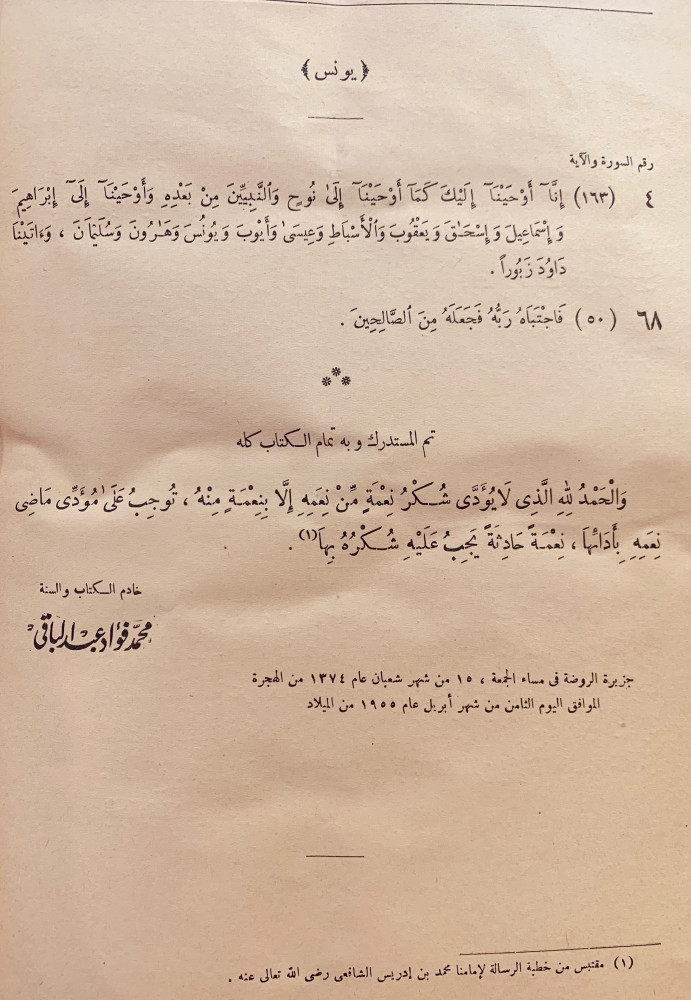 ﴿ يونس ﴾
رقم السورة والآية
٤ (١٦٣) إِنَّآ أَوْحَيْنَآ إِلَيْكَ كَمَآ أَوْحَيْنَآ إِلَىٰ نُوحٍ وَٱلنَّبِيِّينَ مِنْ بَعْدِهِ وَأَوْحَيْنَآ إِلَىٰٓ إِبْرَاهِيمَ
وَإِسْمَاعِيلَ وَإِسْحَـٰقَ وَيَعْقُوبَ وَٱلْأَسْبَاطِ وَعِيسَىٰ وَأَيُّوبَ وَيُونُسَ وَهَـٰرُونَ وَسُلَيْمَـٰنَ ، وَءَاتَيْنَا
دَاوُدَ زَبُوراً .
٦٨ (٥٠) فَاجْتَبَاهُ رَبُّهُ فَجَعَلَهُ مِنَ ٱلصَّالِحِينَ .
تم المستدرك وبه تمام الكتاب كله
وَالْحَمْدُ لِلهِ الَّذِى لَا يُؤَدَّى شُكْرُ نِعْمَةٍ مِّنْ نِعَمِهِ إِلَّا بِنِعْمَةٍ مِنْهُ ، تُوجِبُ عَلَىٰ مُؤَدِّى مَاضِى
نِعَمِهِ بِأَدَائِهَا ، نِعْمَةً حَادِثَةً يَجِبُ عَلَيْهِ شُكْرُهُ بِهَا(١) .
خادم الكتاب والسنة
محمد فؤاد عبد الباقى
جزيرة الروضة فى مساء الجمعة ، ١٥ من شهر شعبان عام ١٣٧٤ من الهجرة
الموافق اليوم الثامن من شهر أبريل عام ١٩٥٥ من الميلاد
(١) مقتبس من خطبة الرسالة لإمامنا محمد بن إدريس الشافعى رضى الله تعالى عنه .